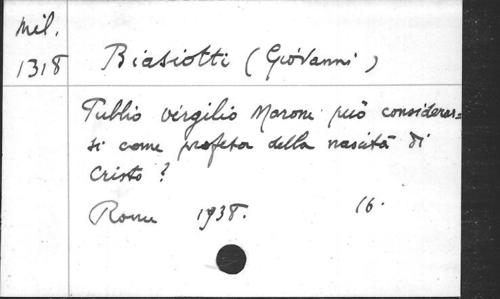 Mil.
1318
Biasiotti (Giovanni)
Publio Virgilio Marone può considerar=
si come profeta della nascita di
Cristo?
Roma 1938. 16.